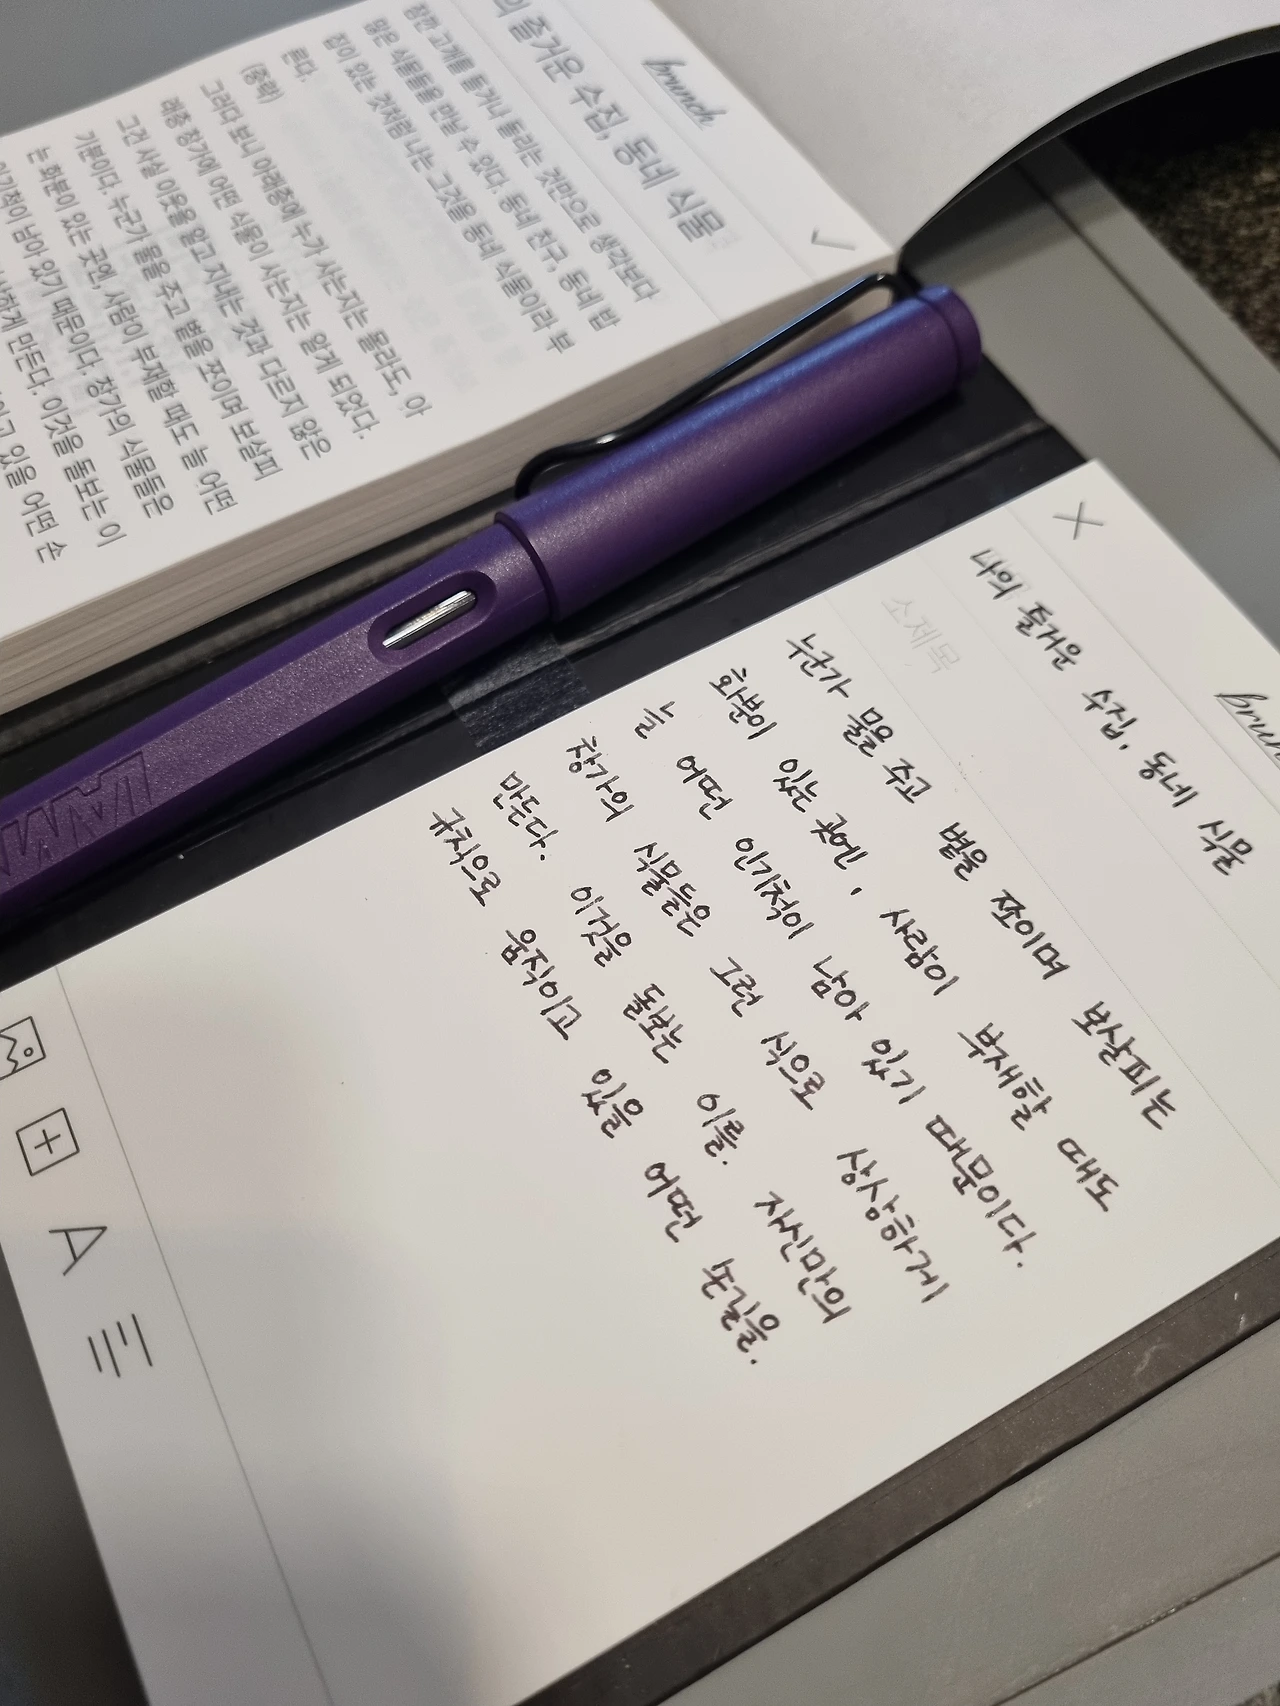 brunch
의 즐거운 수집, 동네 식물
잠깐 고개를 들거나 돌리는 것만으로 생각보다
많은 식물들을 만날 수 있다. 동네 친구, 동네 밥
집이 있는 것처럼 나는 그것을 동네 식물이라 부
른다.
(중략)
그러다 보니 아래층에 누가 사는지는 몰라도, 아
래층 창가에 어떤 식물이 사는지는 알게 되었다.
그건 사실 이웃을 알고 지내는 것과 다르지 않은
기분이다. 누군가 물을 주고 볕을 쪼이며 보살피
는 화분이 있는 곳엔, 사람이 부재할 때도 늘 어떤
인기척이 남아 있기 때문이다. 창가의 식물들은
상하게 만든다. 이것을 돌보는 이
있을 어떤 손
LAMY
brun
나의 즐거운 수집, 동네 식물
소제목
누군가 물을 주고 볕을 쪼이며 보살피는
화분이 있는 곳엔, 사람이 부재할 때도
늘 어떤 인기척이 남아 있기 때문이다.
창가의 식물들은 그런 식으로 상상하게
만든다. 이것을 돌보는 이를. 자신만의
규칙으로 움직이고 있을 어떤 손길을.
A